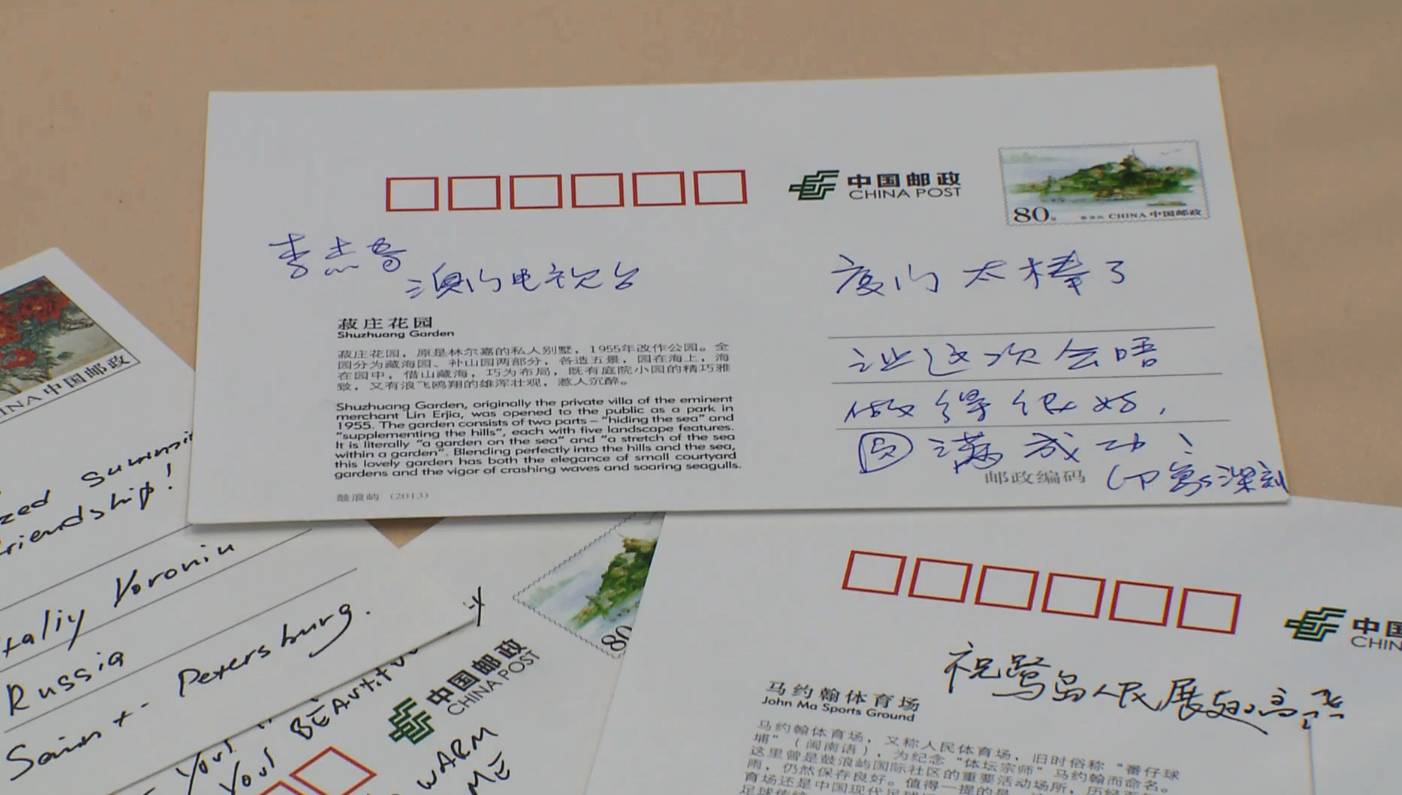 中国邮政
CHINA POST
80分
CHINA 中国邮政
澳门电视台
厦门太棒了
让这次会晤
做得很好，
圆满成功！
印象深刻
菽庄花园
Shuzhuang Garden
菽庄花园，原是林尔嘉的私人别墅，1955年改作公园。全
园分为藏海园、补山园两部分，各造五景，园在海上，海
在园中，借山藏海，巧为布局，既有庭院小园的精巧雅
致，又有浪飞鸥翔的雄浑壮观，惹人沉醉。
Shuzhuang Garden, originally the private villa of the eminent
merchant Lin Erjia, was opened to the public as a park in
1955. The garden consists of two parts – "hiding the sea" and
"supplementing the hills", each with five landscape features.
It is literally "a garden on the sea" and "a stretch of the sea
within a garden". Blending perfectly into the hills and the sea,
this lovely garden has both the elegance of small courtyard
gardens and the vigor of crashing waves and soaring seagulls.
鼓浪屿 (2013)
邮政编码
中国邮政
friendship!
Voronin
Russia
Saint-Petersburg.
80
中国邮政
CHINA POST
YOUR
YOUR BEAUTIFUL
WARM
中国
祝鹭岛人民展翅高飞
马约翰体育场
John Ma Sports Ground
马约翰体育场，又称人民体育场，旧时俗称"番仔球
埔"（闽南语），为纪念"体坛宗师"马约翰而命名。
这里曾是鼓浪屿国际社区的重要活动场所，历经
雨，仍然保存良好。值得一提的是，
育场还是中国现代足球